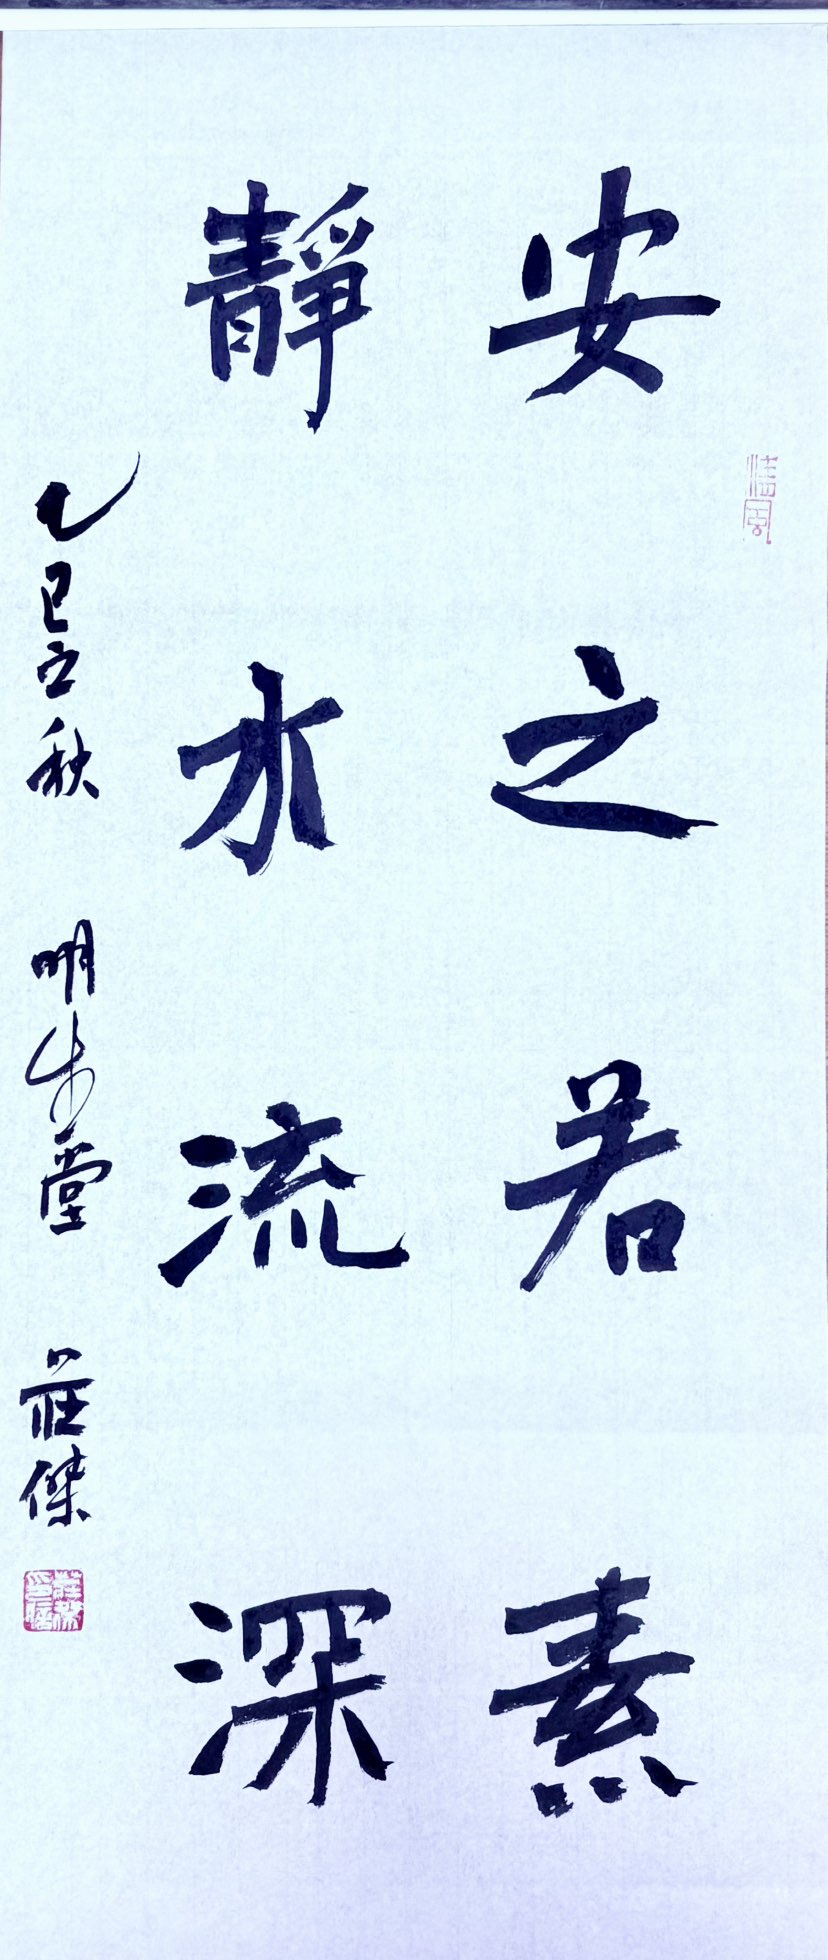 安之若素
靜水流深
乙巳立秋 明生堂 莊傑